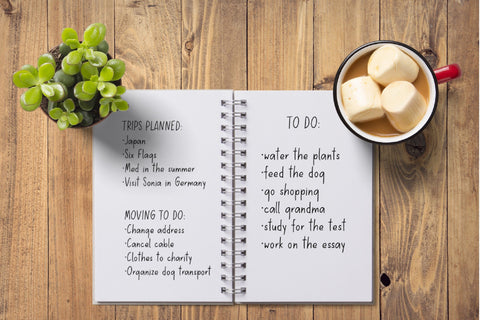 TRIPS PLANNED:
·Japan
·Six Flags
·Med in the summer
·Visit Sonia in Germany
MOVING TO DO:
·Change address
·Cancel cable
·Clothes to charity
·Organize dog transport
TO DO:
·water the plants
·feed the dog
·go shopping
·call grandma
·study for the test
·work on the essay